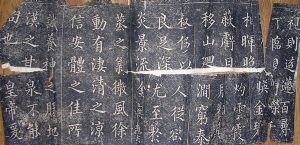 則迢遰百尋
相暉照灼雲霞
蔽虧日
移山迴澗窮泰
極侈以人從欲
良足深尤至於
炎景流
蒸之氣微風徐
動有淒清之涼
信安體之佳所
誠養神之勝地
漢之甘泉不能
尚也皇帝爰